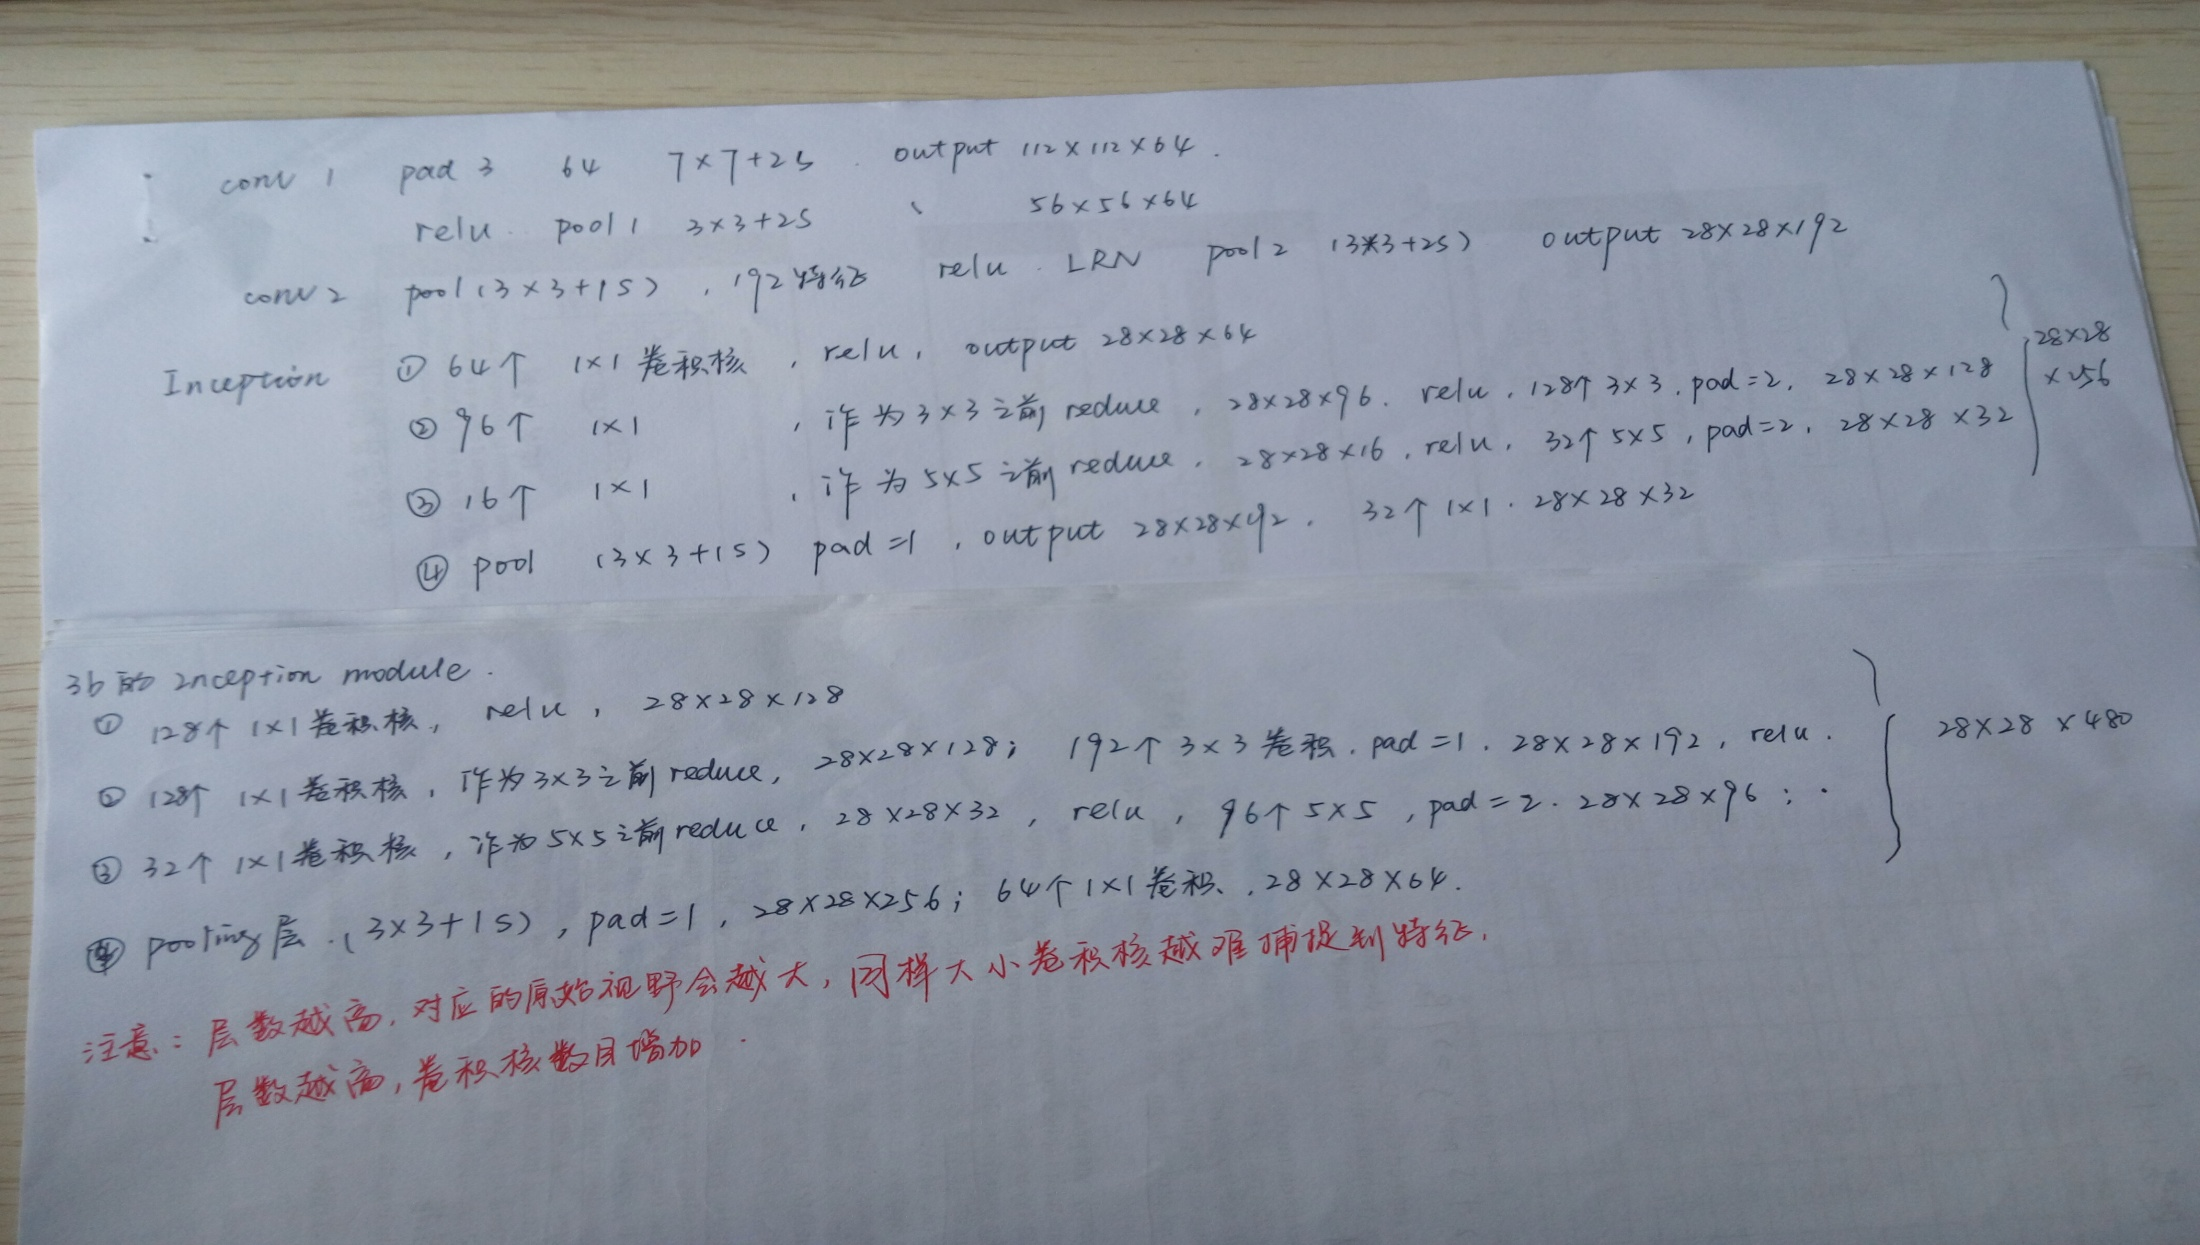 conv 1 pad 3 64 7×7+2S . output 112×112×64 .
relu . pool1 3×3+2S 、 56×56×64
conv2 pool(3×3+1S) , 192特征 relu . LRN pool2 (3×3+2S) output 28×28×192
Inception ① 64个 1×1卷积核 , relu , output 28×28×64
② 96个 1×1 , 作为3×3之前reduce , 28×28×96 . relu , 128个3×3 , pad=2 , 28×28×128
③ 16个 1×1 , 作为5×5之前reduce , 28×28×16 , relu , 32个5×5 , pad=2 , 28×28×32
④ pool (3×3+1S) pad=1 , output 28×28×192 , 32个1×1 . 28×28×32
28×28
×256
3b的 inception module .
① 128个1×1卷积核 , relu , 28×28×128
② 128个 1×1卷积核 , 作为3×3之前reduce , 28×28×128 ; 192个3×3卷积 . pad=1 . 28×28×192 , relu .
③ 32个1×1卷积核 , 作为5×5之前reduce , 28×28×32 , relu , 96个5×5 , pad=2 . 28×28×96 ; .
④ pooling层 . (3×3+1S) , pad=1 , 28×28×256 ; 64个1×1卷积 , 28×28×64 .
28×28×480
注意：层数越高，对应的原始视野会越大，同样大小卷积核越难捕捉到特征，
层数越高，卷积核数目增加 .